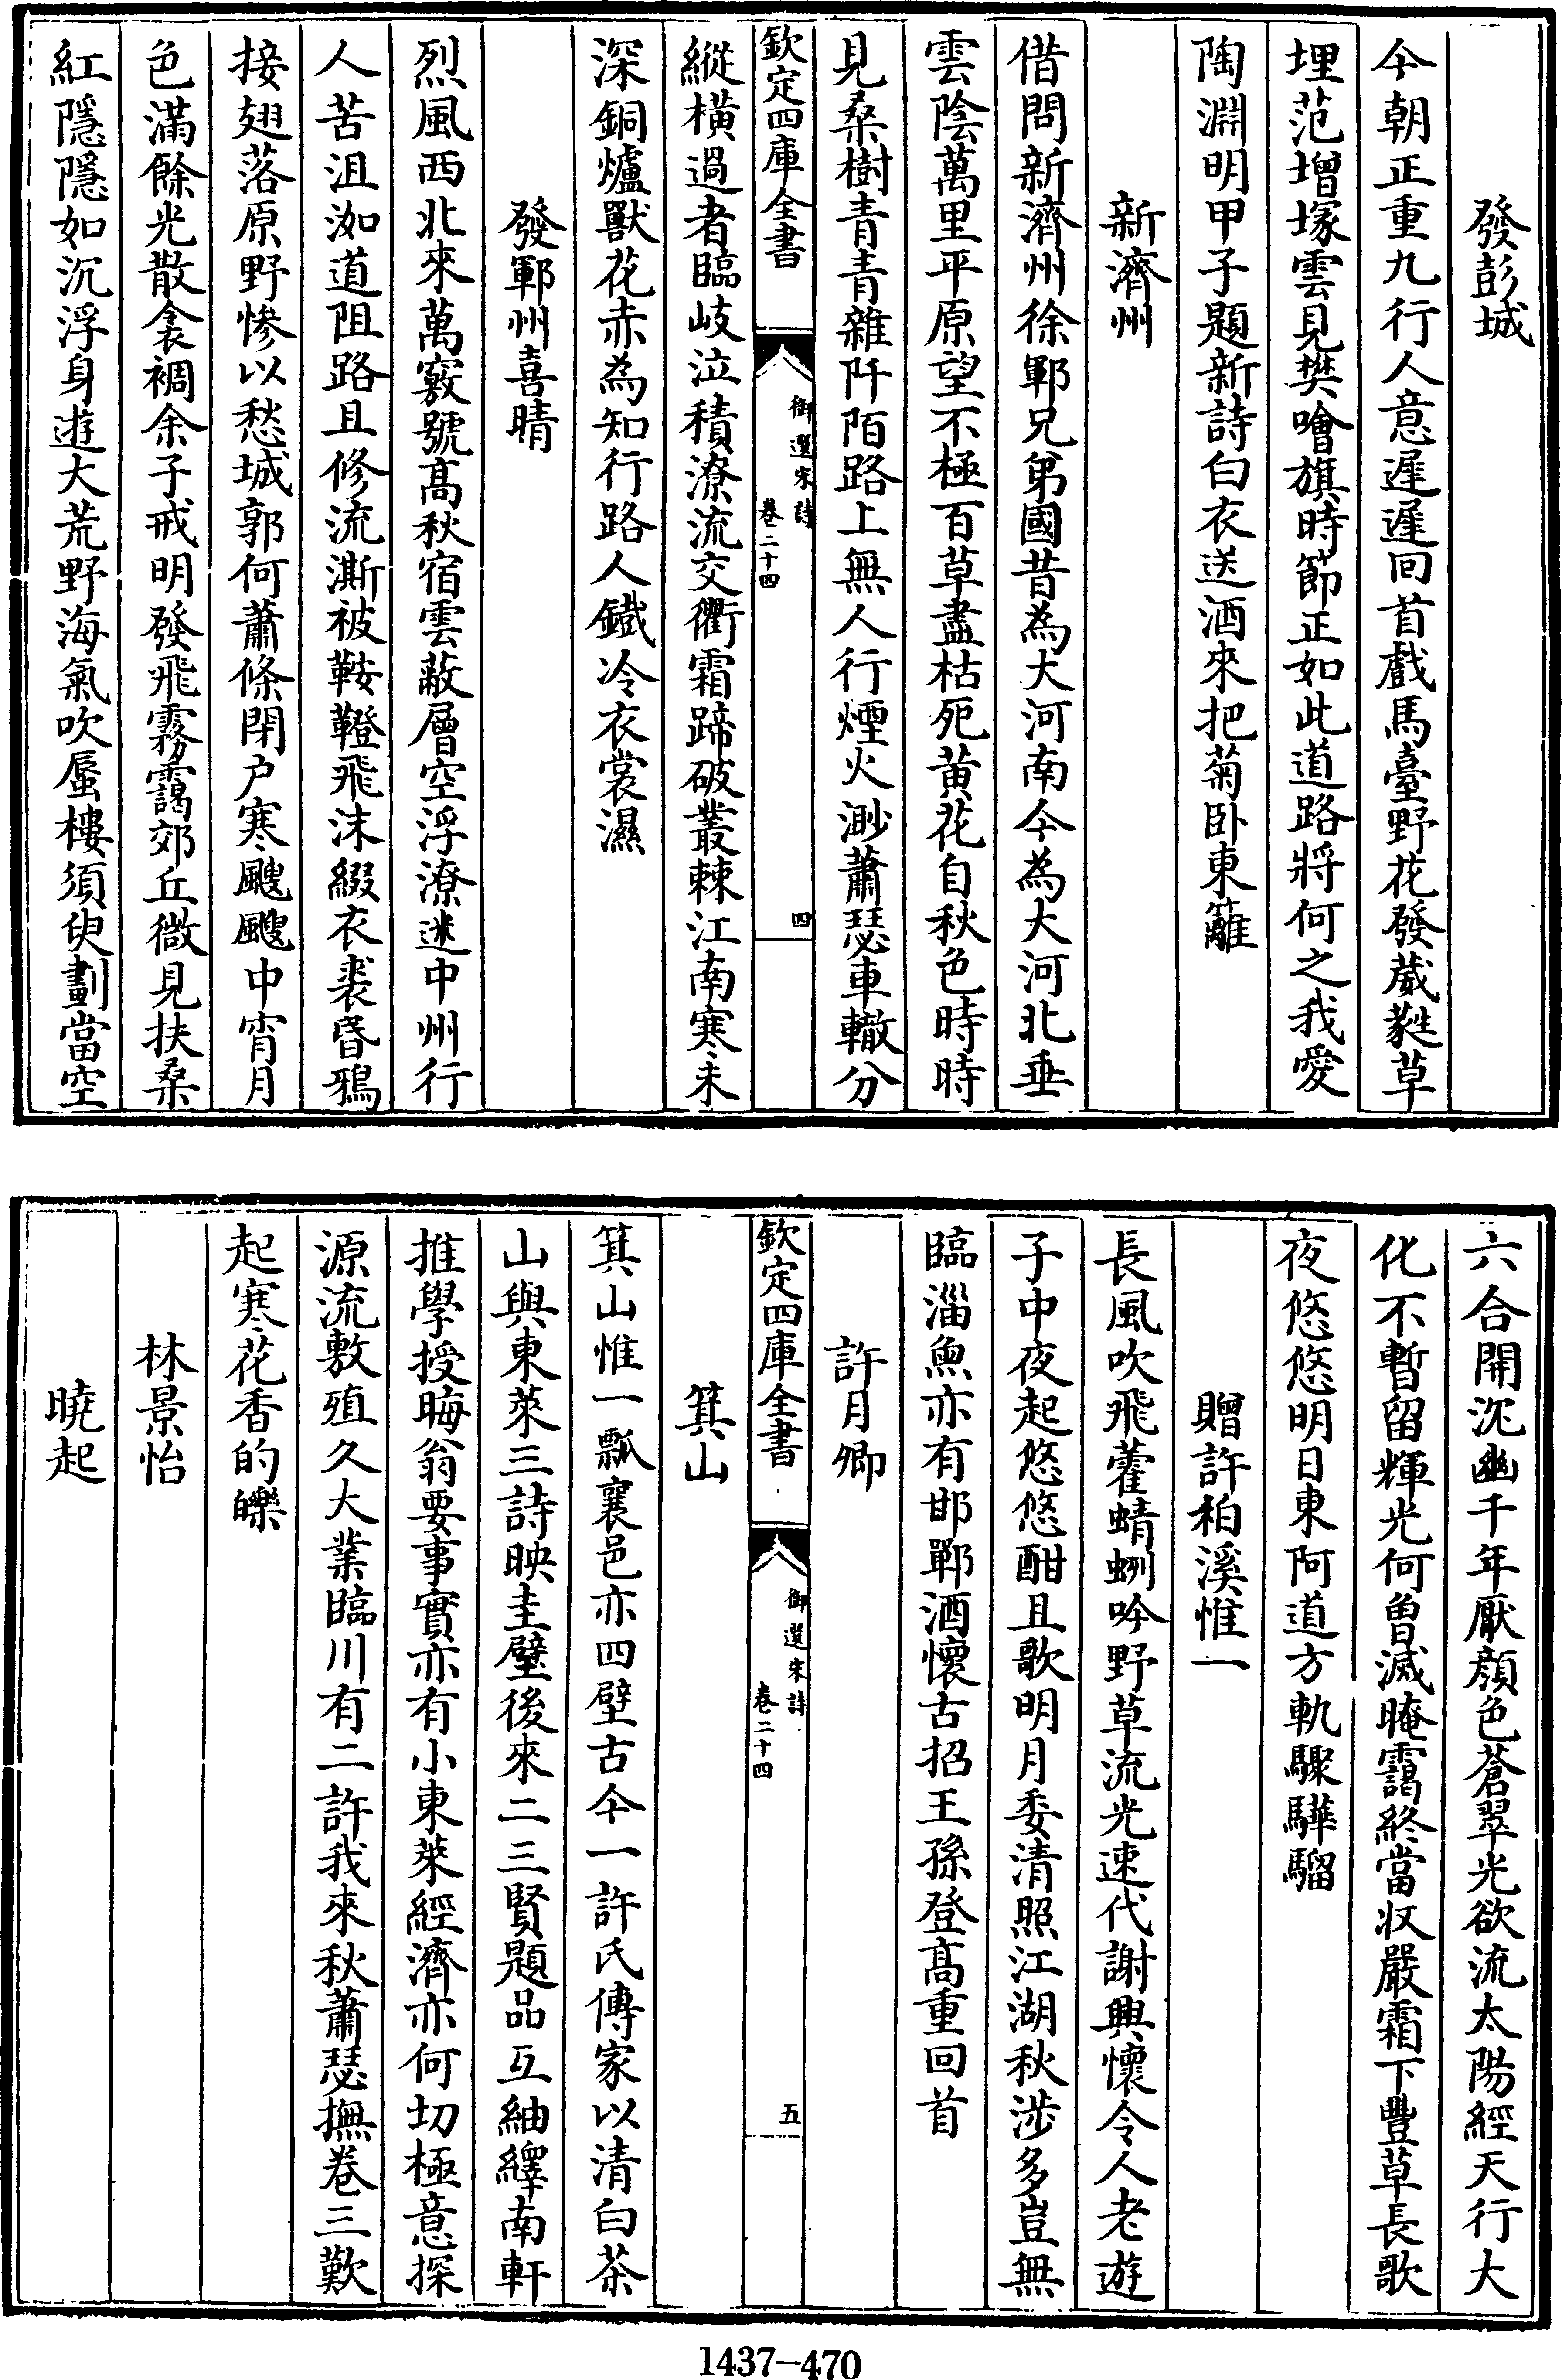 發彭城
今朝正重九行人意遲遲回首戲馬臺野花發葳蕤草
埋范增塚雲見樊噲旗時節正如此道路將何之我愛
陶淵明甲子題新詩白衣送酒來把菊卧東籬
新濟州
借問新濟州徐鄆兄弟國昔為大河南今為大河北垂
雲陰萬里平原望不極百草盡枯死黄花自秋色時時
見桑樹青青雜阡陌路上無人行煙火渺蕭瑟車轍分
欽定四庫全書
御選宋詩
卷二十四
四
縱橫過者臨岐泣積潦流交衢霜蹄破叢棘江南寒未
深銅爐獸花赤為知行路人鐵冷衣裳濕
發鄆州喜晴
烈風西北來萬竅號高秋宿雲蔽層空浮潦迷中州行
人苦沮洳道阻路且修流澌被鞍鞯飛沫綴衣裘昏鴉
接翅落原野慘以愁城郭何蕭條閉户寒颼颼中宵月
色滿餘光散衾裯余子戒明發飛霧靄郊丘微見扶桑
紅隱隱如沉浮身遊大荒野海氣吹蜃樓須臾劃當空
六合開沉幽千年厭顔色蒼翠光欲流太陽經天行大
化不暫留輝光何曾滅晻靄終當収嚴霜下豐草長歌
夜悠悠明日東阿道方軌驟驊騮
贈許柏溪惟一
長風吹飛藿蜻蛚吟野草流光速代謝興懷令人老遊
子中夜起悠悠酣且歌明月委清照江湖秋涉多豈無
臨淄魚亦有邯鄲酒懷古招王孫登高重回首
許月卿
欽定四庫全書
御選宋詩
卷二十四
五
箕山
箕山惟一瓢襄邑亦四壁古今一許氏傳家以清白茶
山與東萊三詩映圭璧後來二三賢題品互紬繹南軒
推學授晦翁要事實亦有小東萊經濟亦何切極意探
源流敷殖久大業臨川有二許我來秋蕭瑟撫卷三歎
起寒花香的皪
林景怡
曉起
1437-470